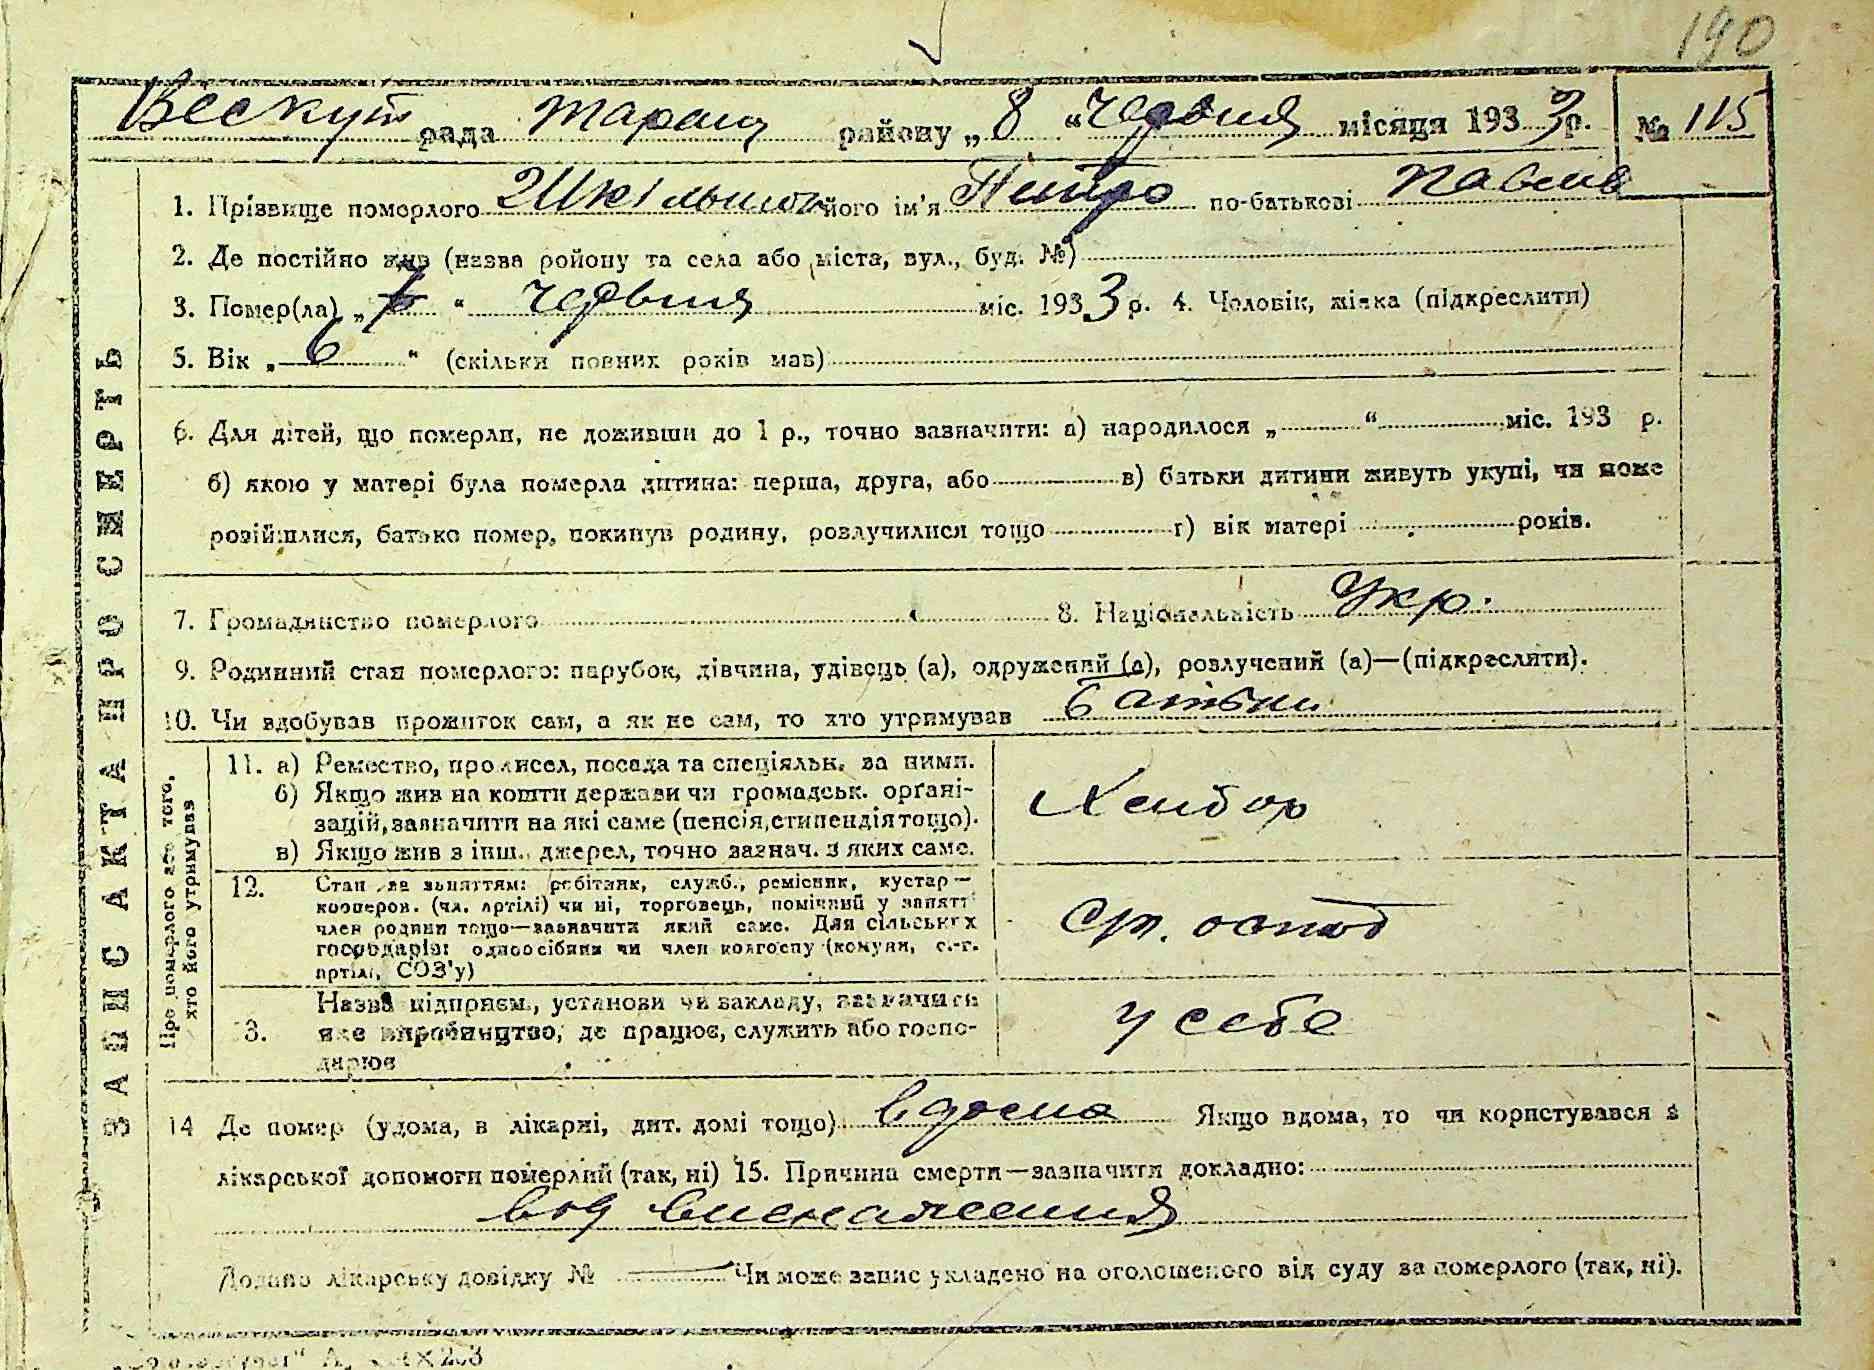 190
Вескут рада Таращ району „8“ червня місяця 1933 р. № 115
1. Прізвище померлого його ім'я Петро по-батькові Павло
2. Де постійно жив (назваройону та села або міста, вул., буд. №)
3. Помер(ла) „7“ червня міс. 1933 р. 4. Чоловік, жінка (підкреслити)
5. Вік „6“ (скільки повних років мав)
6. Для дітей, що померли, не доживши до 1 р., точно зазначити: а) народилося „ “ міс. 193 р.
б) якою у матері була померла дитина: перша, друга, або в) батьки дитини живуть укупі, чи може
розійшлися, батько помер, покинув родину, розлучилися тощо г) вік матері років.
7. Громадянство померлого 8. Національність Укр.
9. Родинний стан померлого: парубок, дівчина, удівець (а), одружений (а), розлучений (а)—(підкреслити).
10. Чи здобував прожиток сам, а як не сам, то хто утримував батьки
ЗАПИС АКТА ПРО СМЕРТЬ
Про померлого або того,
хто його утримував
11. а) Ремество, промисел, посада та спеціяльн. за ними.
б) Якщо жив на кошти держави чи громадськ. орґані-
зацій, зазначити на які саме (пенсія, стипендія тощо).
в) Якщо жив з інш. джерел, точно зазнач. з яких саме.
Хлибор
12. Стан за заняттям: робітник, служб., ремісник, кустар—
кооперов. (чл. артілі) чи ні, торговець, помічний у занятті
член родини тощо—зазначити який саме. Для сільських
господарів: одноосібник чи член колгоспу (комуни, с.-г.
артілі, СОЗ'у)
13. Назва підприєм., установи чи закладу, зазначити
яке виробництво, де працює, служить або госпо-
дарює
у себе
14 Де помер (удома, в лікарні, дит. домі тощо) вдома Якщо вдома, то чи користувався з
лікарської допомоги померлий (так, ні) 15. Причина смерти—зазначити докладно:
вод виснаження
Додано лікарську довідку № Чи може запис укладено на оголошеного від суду за померлого (так, ні).